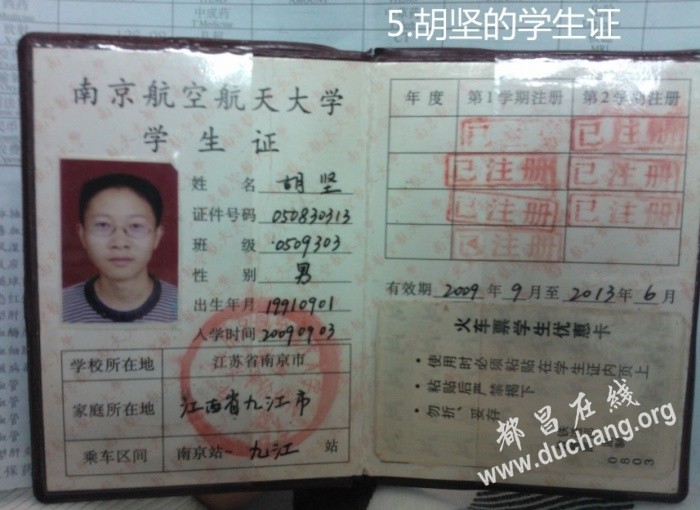 5.胡坚的学生证
南京航空航天大学
学生证
姓 名 胡坚
证件号码 050830313
班 级 0509303
性 别 男
出生年月 19910901
入学时间 20090903
学校所在地 江苏省南京市
家庭所在地 江西省九江市
乘车区间 南京站~九江 站
年度 第1学期注册 第2学期注册
已注册 已注册
已注册 已注册
已注册 已注册
已注册
有效期 2009 年 9 月至 2013 年 6 月
火车票学生优惠卡
• 使用时必须粘贴在学生证内页上
• 粘贴后严禁揭下
• 勿折、妥存
0803
都昌在线
www.duchang.org